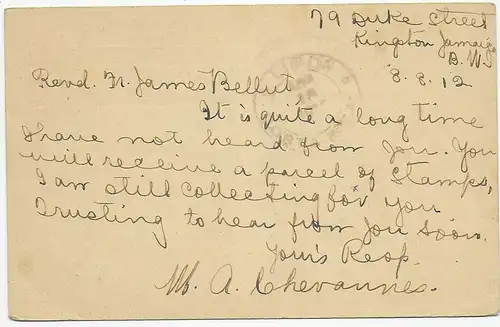 79 Duke Street
Kingston Jamaica
B. W. I
8. 8. 12
Revd. Fr. James Bellut
It is quite a long time
I have not heard from you. You
will receive a parcel of Stamps,
I am still collecting for you
Trusting to hear from you soon.
Your's Resp.
M. A. Chevannes.